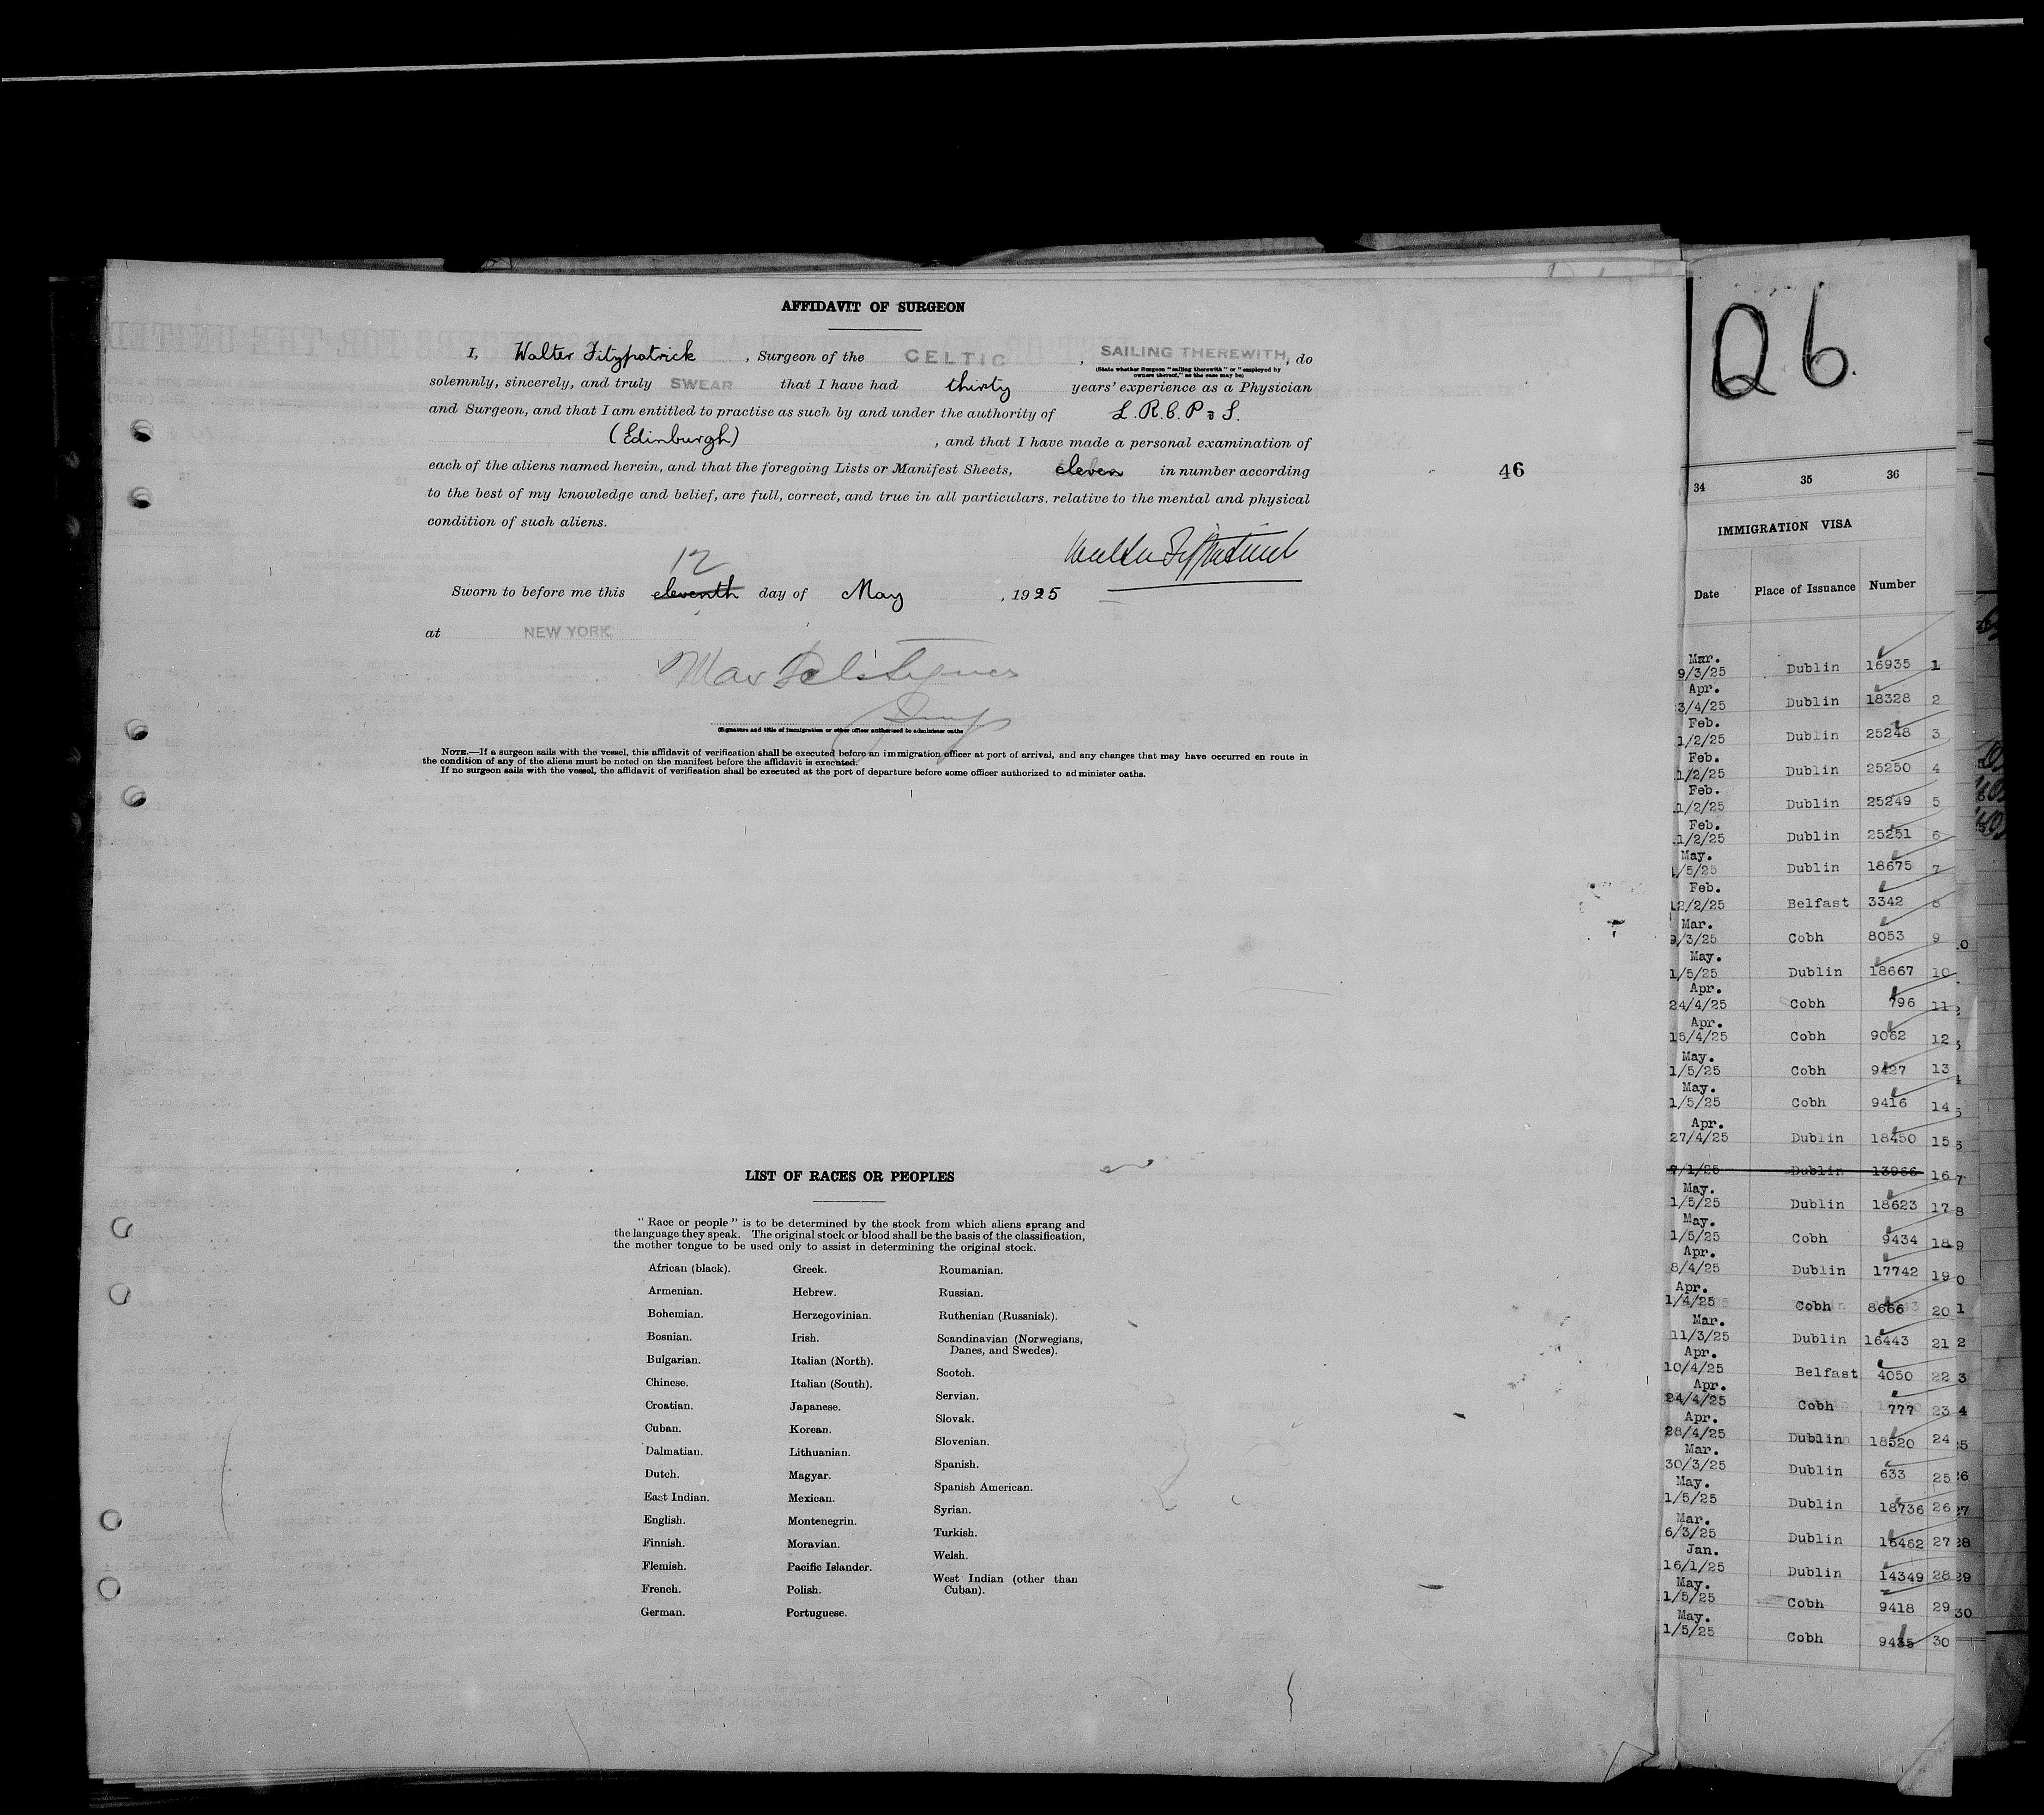 AFFIDAVIT OF SURGEON
I, Walter Fitzpatrick, Surgeon of the CELTIC, SAILING THEREWITH, do
(State whether Surgeon "sailing therewith" or "employed by
owners thereof," as the case may be)
solemnly, sincerely, and truly SWEAR that I have had thirty years' experience as a Physician
and Surgeon, and that I am entitled to practise as such by and under the authority of L.R.C.P & S.
(Edinburgh), and that I have made a personal examination of
each of the aliens named herein, and that the foregoing Lists or Manifest Sheets, eleven in number according
to the best of my knowledge and belief, are full, correct, and true in all particulars, relative to the mental and physical
condition of such aliens.
Walter Fitzpatrick
12
Sworn to before me this eleventh day of May, 1925
at NEW YORK
(Signature and title of immigration or other officer authorized to administer oaths
NOTE.—If a surgeon sails with the vessel, this affidavit of verification shall be executed before an immigration officer at port of arrival, and any changes that may have occurred en route in
the condition of any of the aliens must be noted on the manifest before the affidavit is executed.
If no surgeon sails with the vessel, the affidavit of verification shall be executed at the port of departure before some officer authorized to administer oaths.
46
LIST OF RACES OR PEOPLES
"Race or people" is to be determined by the stock from which aliens sprang and
the language they speak. The original stock or blood shall be the basis of the classification,
the mother tongue to be used only to assist in determining the original stock.
African (black).
Armenian.
Bohemian.
Bosnian.
Bulgarian.
Chinese.
Croatian.
Cuban.
Dalmatian.
Dutch.
East Indian.
English.
Finnish.
Flemish.
French.
German.
Greek.
Hebrew.
Herzegovinian.
Irish.
Italian (North).
Italian (South).
Japanese.
Korean.
Lithuanian.
Magyar.
Mexican.
Montenegrin.
Moravian.
Pacific Islander.
Polish.
Portuguese.
Roumanian.
Russian.
Ruthenian (Russniak).
Scandinavian (Norwegians,
Danes, and Swedes).
Scotch.
Servian.
Slovak.
Slovenian.
Spanish.
Spanish American.
Syrian.
Turkish.
Welsh.
West Indian (other than
Cuban).
Q6.
34 35 36
IMMIGRATION VISA
Date Place of Issuance Number
Mar.
9/3/25 Dublin 16935 1
Apr.
3/4/25 Dublin 18328 2
Feb.
1/2/25 Dublin 25248 3
Feb.
1/2/25 Dublin 25250 4
Feb.
1/2/25 Dublin 25249 5
Feb.
1/2/25 Dublin 25251 6
May.
1/5/25 Dublin 18675 7
Feb.
12/2/25 Belfast 3342 8
Mar.
9/3/25 Cobh 8053 9
May.
1/5/25 Dublin 18667 10
Apr.
24/4/25 Cobh 796 11
Apr.
15/4/25 Cobh 9062 12
May.
1/5/25 Cobh 9427 13
May.
1/5/25 Cobh 9416 14
Apr.
27/4/25 Dublin 18450 15
7/1/25 Dublin 13966 16
May.
1/5/25 Dublin 18623 17
May.
1/5/25 Cobh 9434 18
Apr.
8/4/25 Dublin 17742 19
Apr.
1/4/25 Cobh 8666 20
Mar.
11/3/25 Dublin 16443 21
Apr.
10/4/25 Belfast 4050 22
Apr.
24/4/25 Cobh 777 23
Apr.
28/4/25 Dublin 18520 24
Mar.
30/3/25 Dublin 633 25
May.
1/5/25 Dublin 18736 26
Mar.
6/3/25 Dublin 16462 27
Jan.
16/1/25 Dublin 14349 28
May.
1/5/25 Cobh 9418 29
May.
1/5/25 Cobh 9435 30